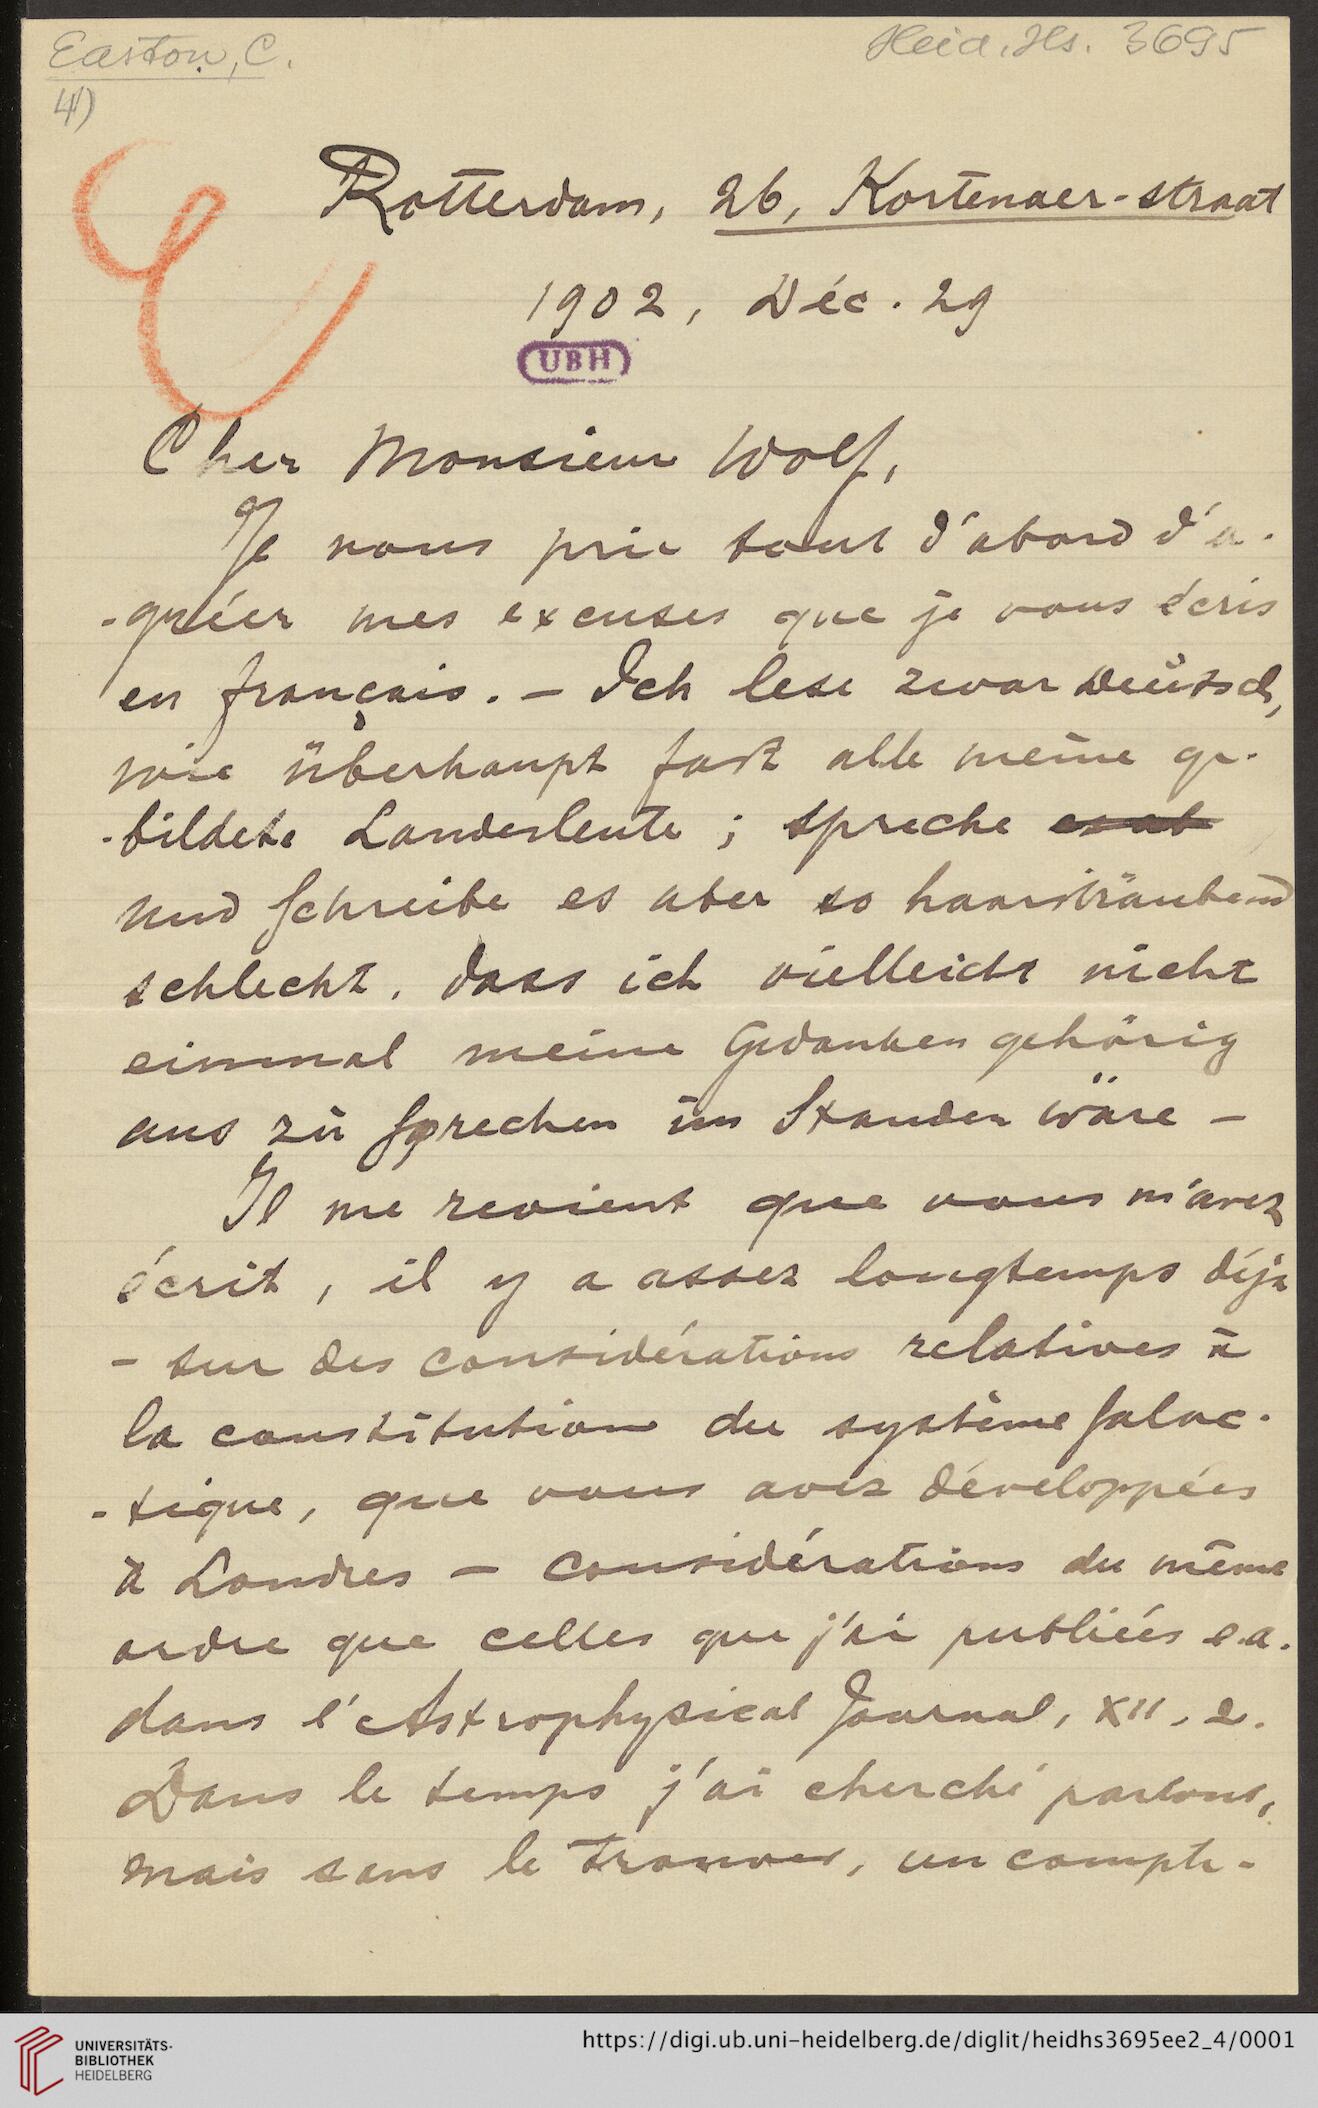 Easton, C.
Heid. Hs. 3695
4)
Rotterdam, 26, Kortenaer-straat
1902, Déc. 29
UBH
Cher Monsieur Wolf,
Je vous prie tout d'abord d'a-
-gréer mes excuses que je vous écris
en français. – Ich lese zwar Deutsch,
wie überhaupt fast alle meine ge-
-bildete Landesleute; spreche es ab
und schreibe es aber so haarsträubend
schlecht, dass ich vielleicht nicht
einmal meine Gedanken gehörig
aus zu sprechen im Standen wäre –
Il me revient que vous m'avez
écrit, il y a assez longtemps déjà
– sur des considérations relatives à
la constitution du système galac-
-tique, que vous avez développées
à Londres – considérations du même
ordre que celles que j'ai publiées e.a.
dans l'Astrophysical Journal, XII, 2.
Dans le temps j'ai cherché partout,
mais sans le trouver, un compte-
UNIVERSITÄTS-
BIBLIOTHEK
HEIDELBERG
https://digi.ub.uni-heidelberg.de/diglit/heidhs3695ee2_4/0001